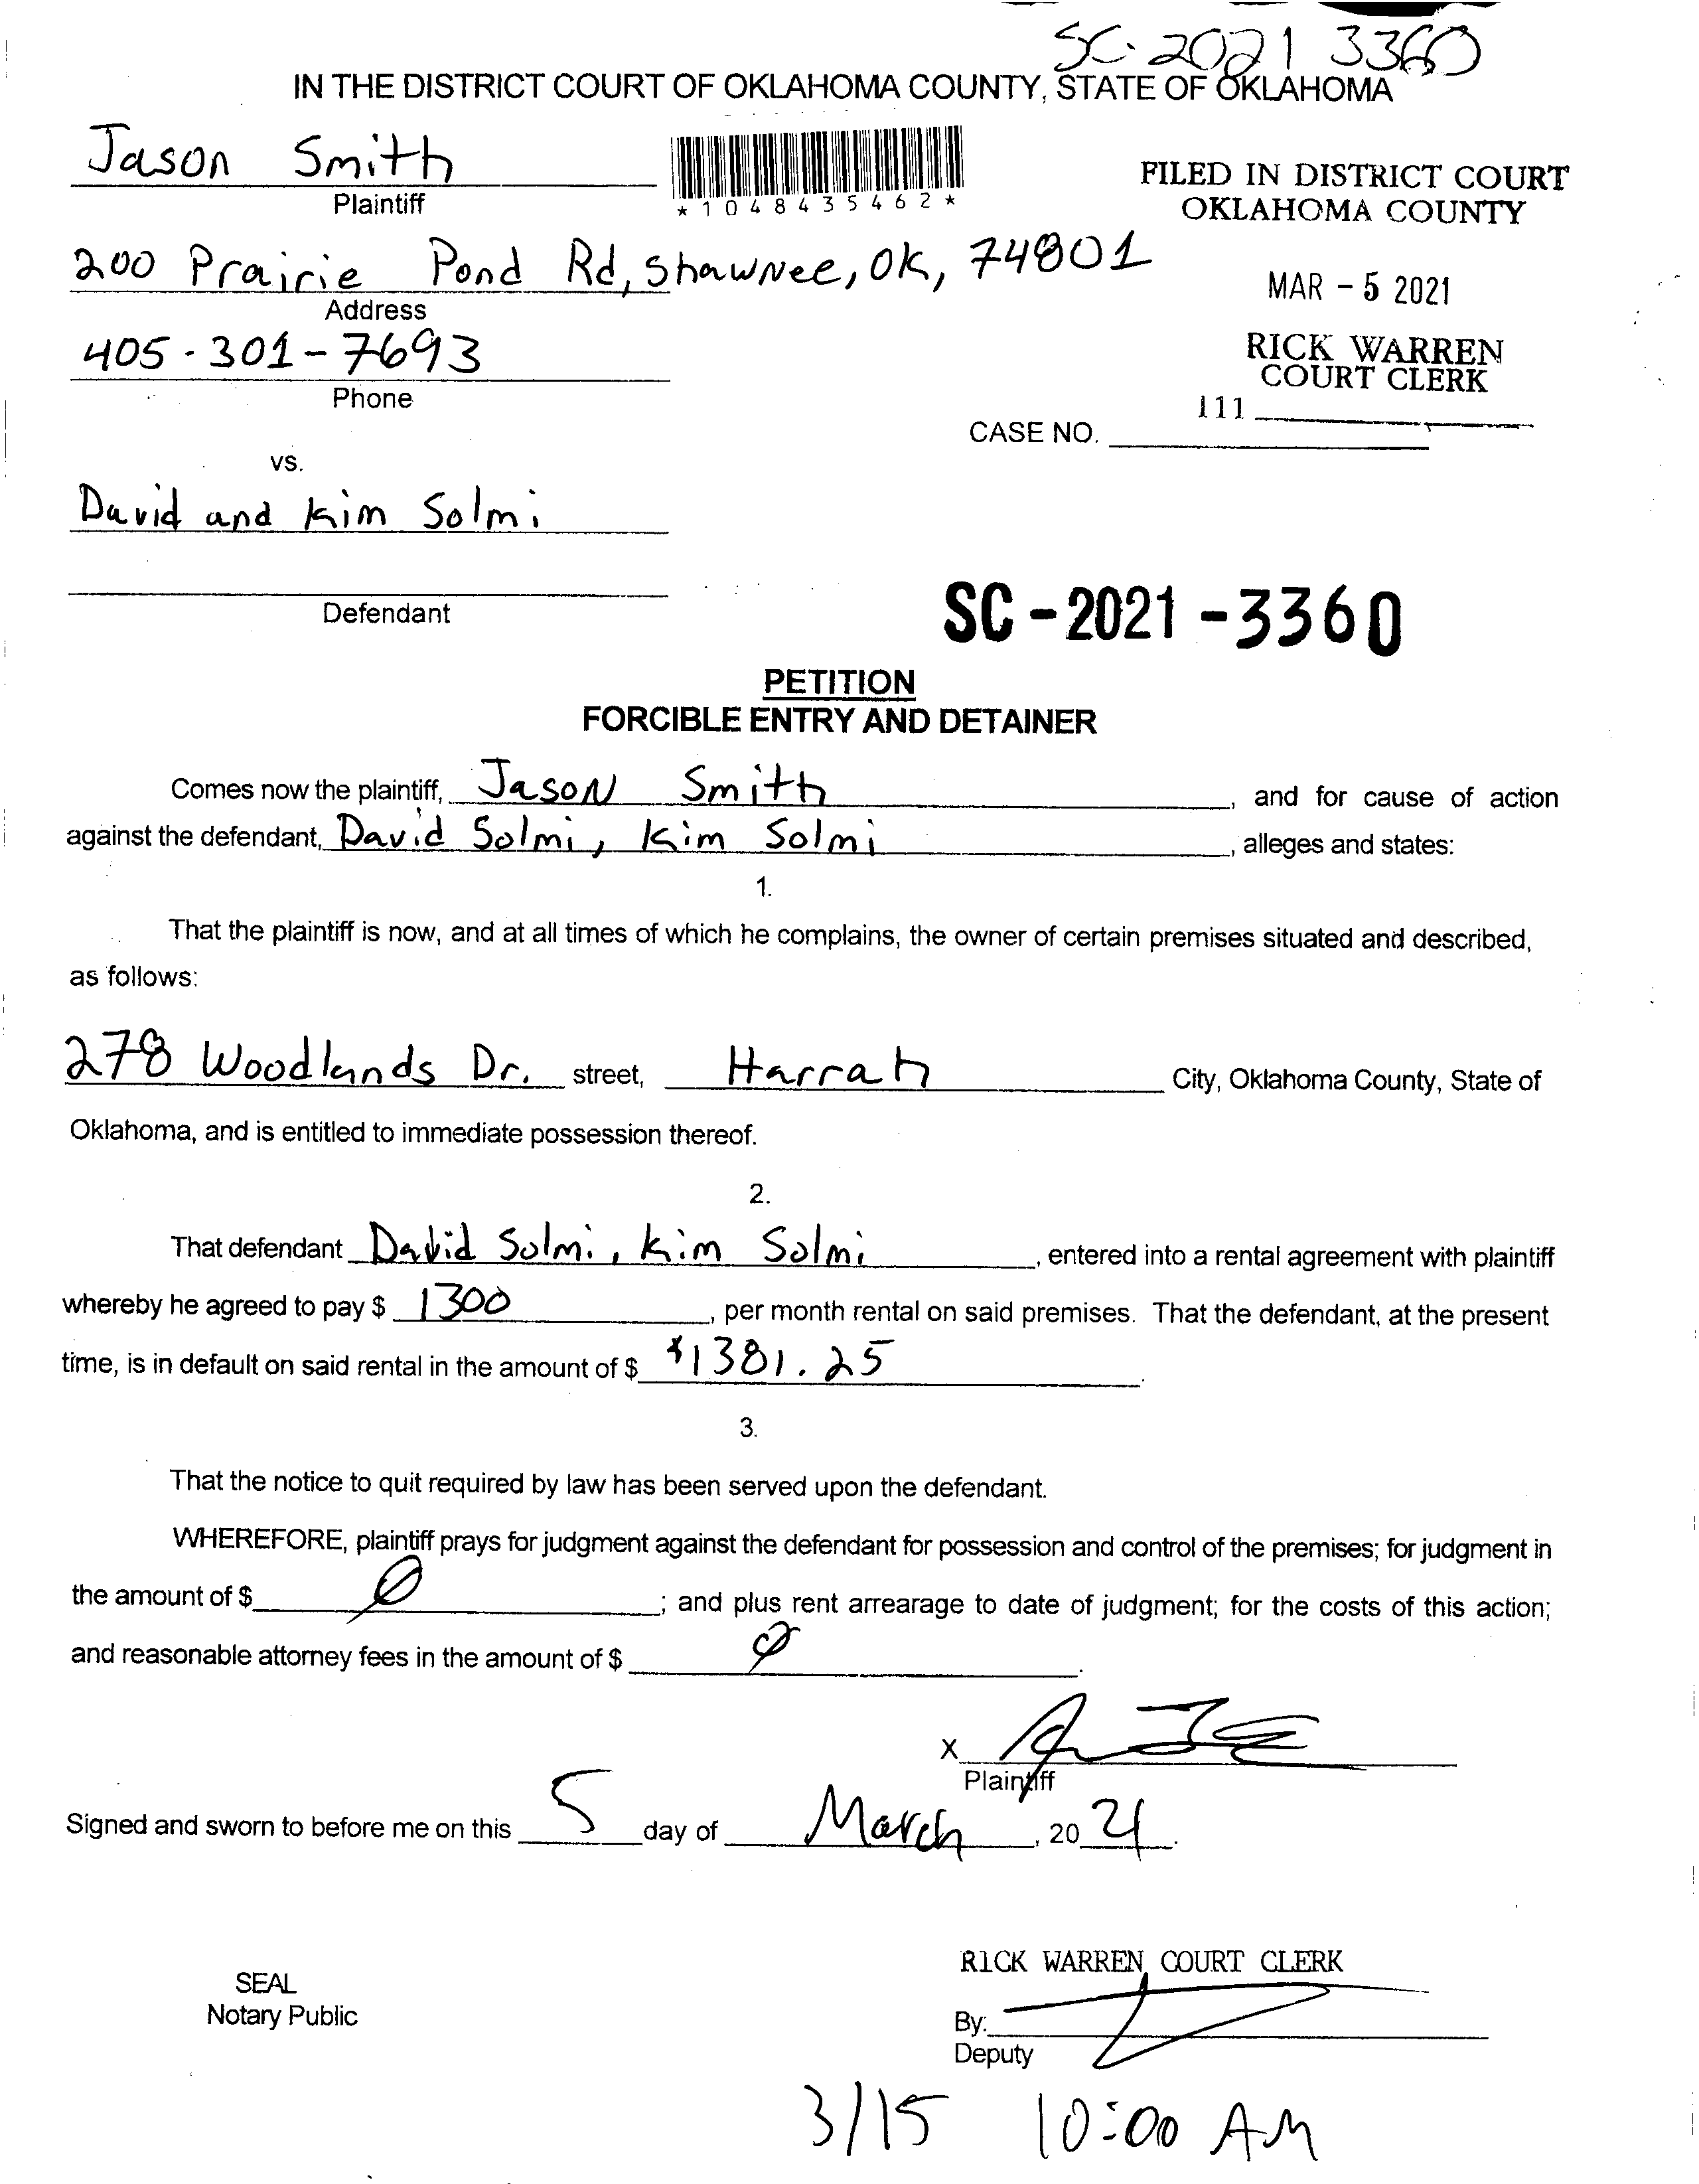 SC-2021 3360
IN THE DISTRICT COURT OF OKLAHOMA COUNTY, STATE OF OKLAHOMA
Jason Smith
Plaintiff
*1048435462*
FILED IN DISTRICT COURT
OKLAHOMA COUNTY
200 Prairie Pond Rd, Shawnee, OK, 74801
Address
MAR - 5 2021
405-301-7693
Phone
RICK WARREN
COURT CLERK
111
CASE NO.
vs.
David and Kim Solmi
Defendant
SC-2021-3360
PETITION
FORCIBLE ENTRY AND DETAINER
Comes now the plaintiff, Jason Smith, and for cause of action
against the defendant, David Solmi, Kim Solmi, alleges and states:
1.
That the plaintiff is now, and at all times of which he complains, the owner of certain premises situated and described,
as follows:
278 Woodlands Dr. street, Harrah City, Oklahoma County, State of
Oklahoma, and is entitled to immediate possession thereof.
2.
That defendant David Solmi, Kim Solmi, entered into a rental agreement with plaintiff
whereby he agreed to pay $ 1300, per month rental on said premises. That the defendant, at the present
time, is in default on said rental in the amount of $ $1381.25.
3.
That the notice to quit required by law has been served upon the defendant.
WHEREFORE, plaintiff prays for judgment against the defendant for possession and control of the premises; for judgment in
the amount of $ 0; and plus rent arrearage to date of judgment; for the costs of this action;
and reasonable attorney fees in the amount of $ 0.
X
Plaintiff
Signed and sworn to before me on this 5 day of March, 2021.
RICK WARREN COURT CLERK
SEAL
Notary Public
By:
Deputy
3/15 10:00 AM